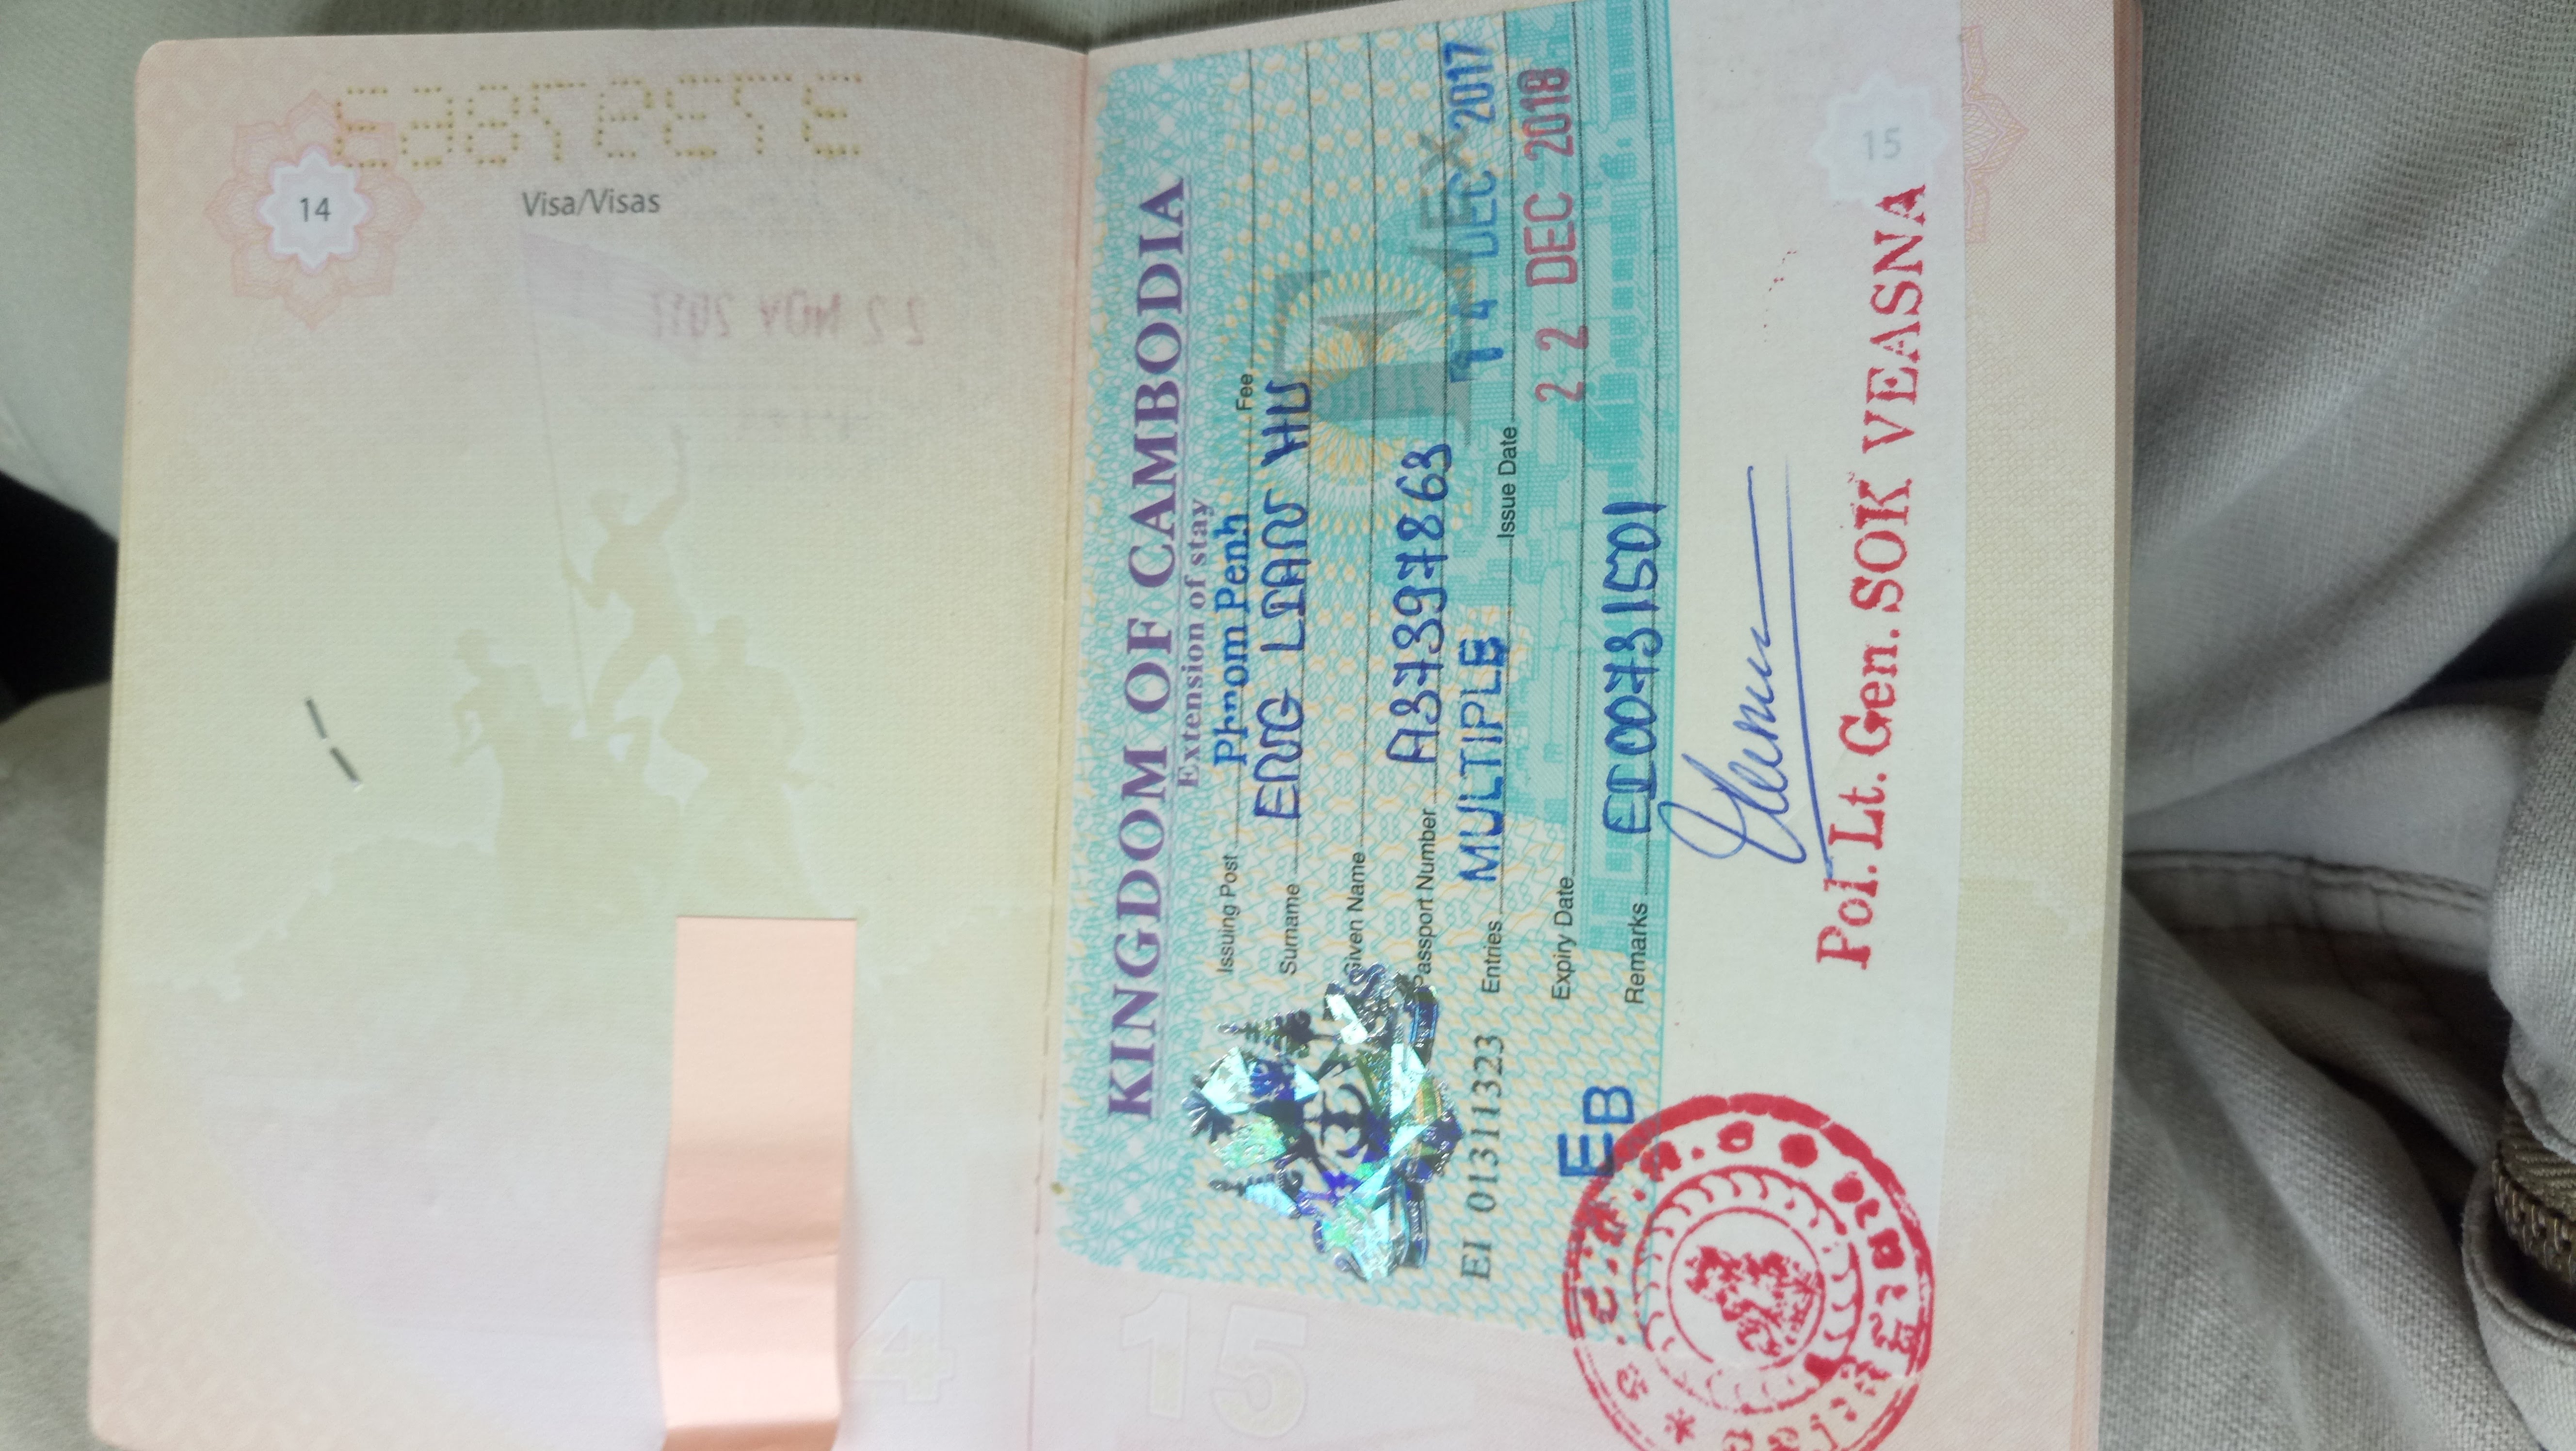 14
Visa/Visas
KINGDOM OF CAMBODIA
Extension of stay
Issuing Post Phnom Penh Fee
Surname ENG LIAN HU
Given Name
Passport Number A37397863
EI 01311323 Entries MULTIPLE Issue Date 14 DEC 2017
Expiry Date 22 DEC 2018
EB
Remarks EI00731501
Pol. Lt. Gen. SOK VEASNA
15